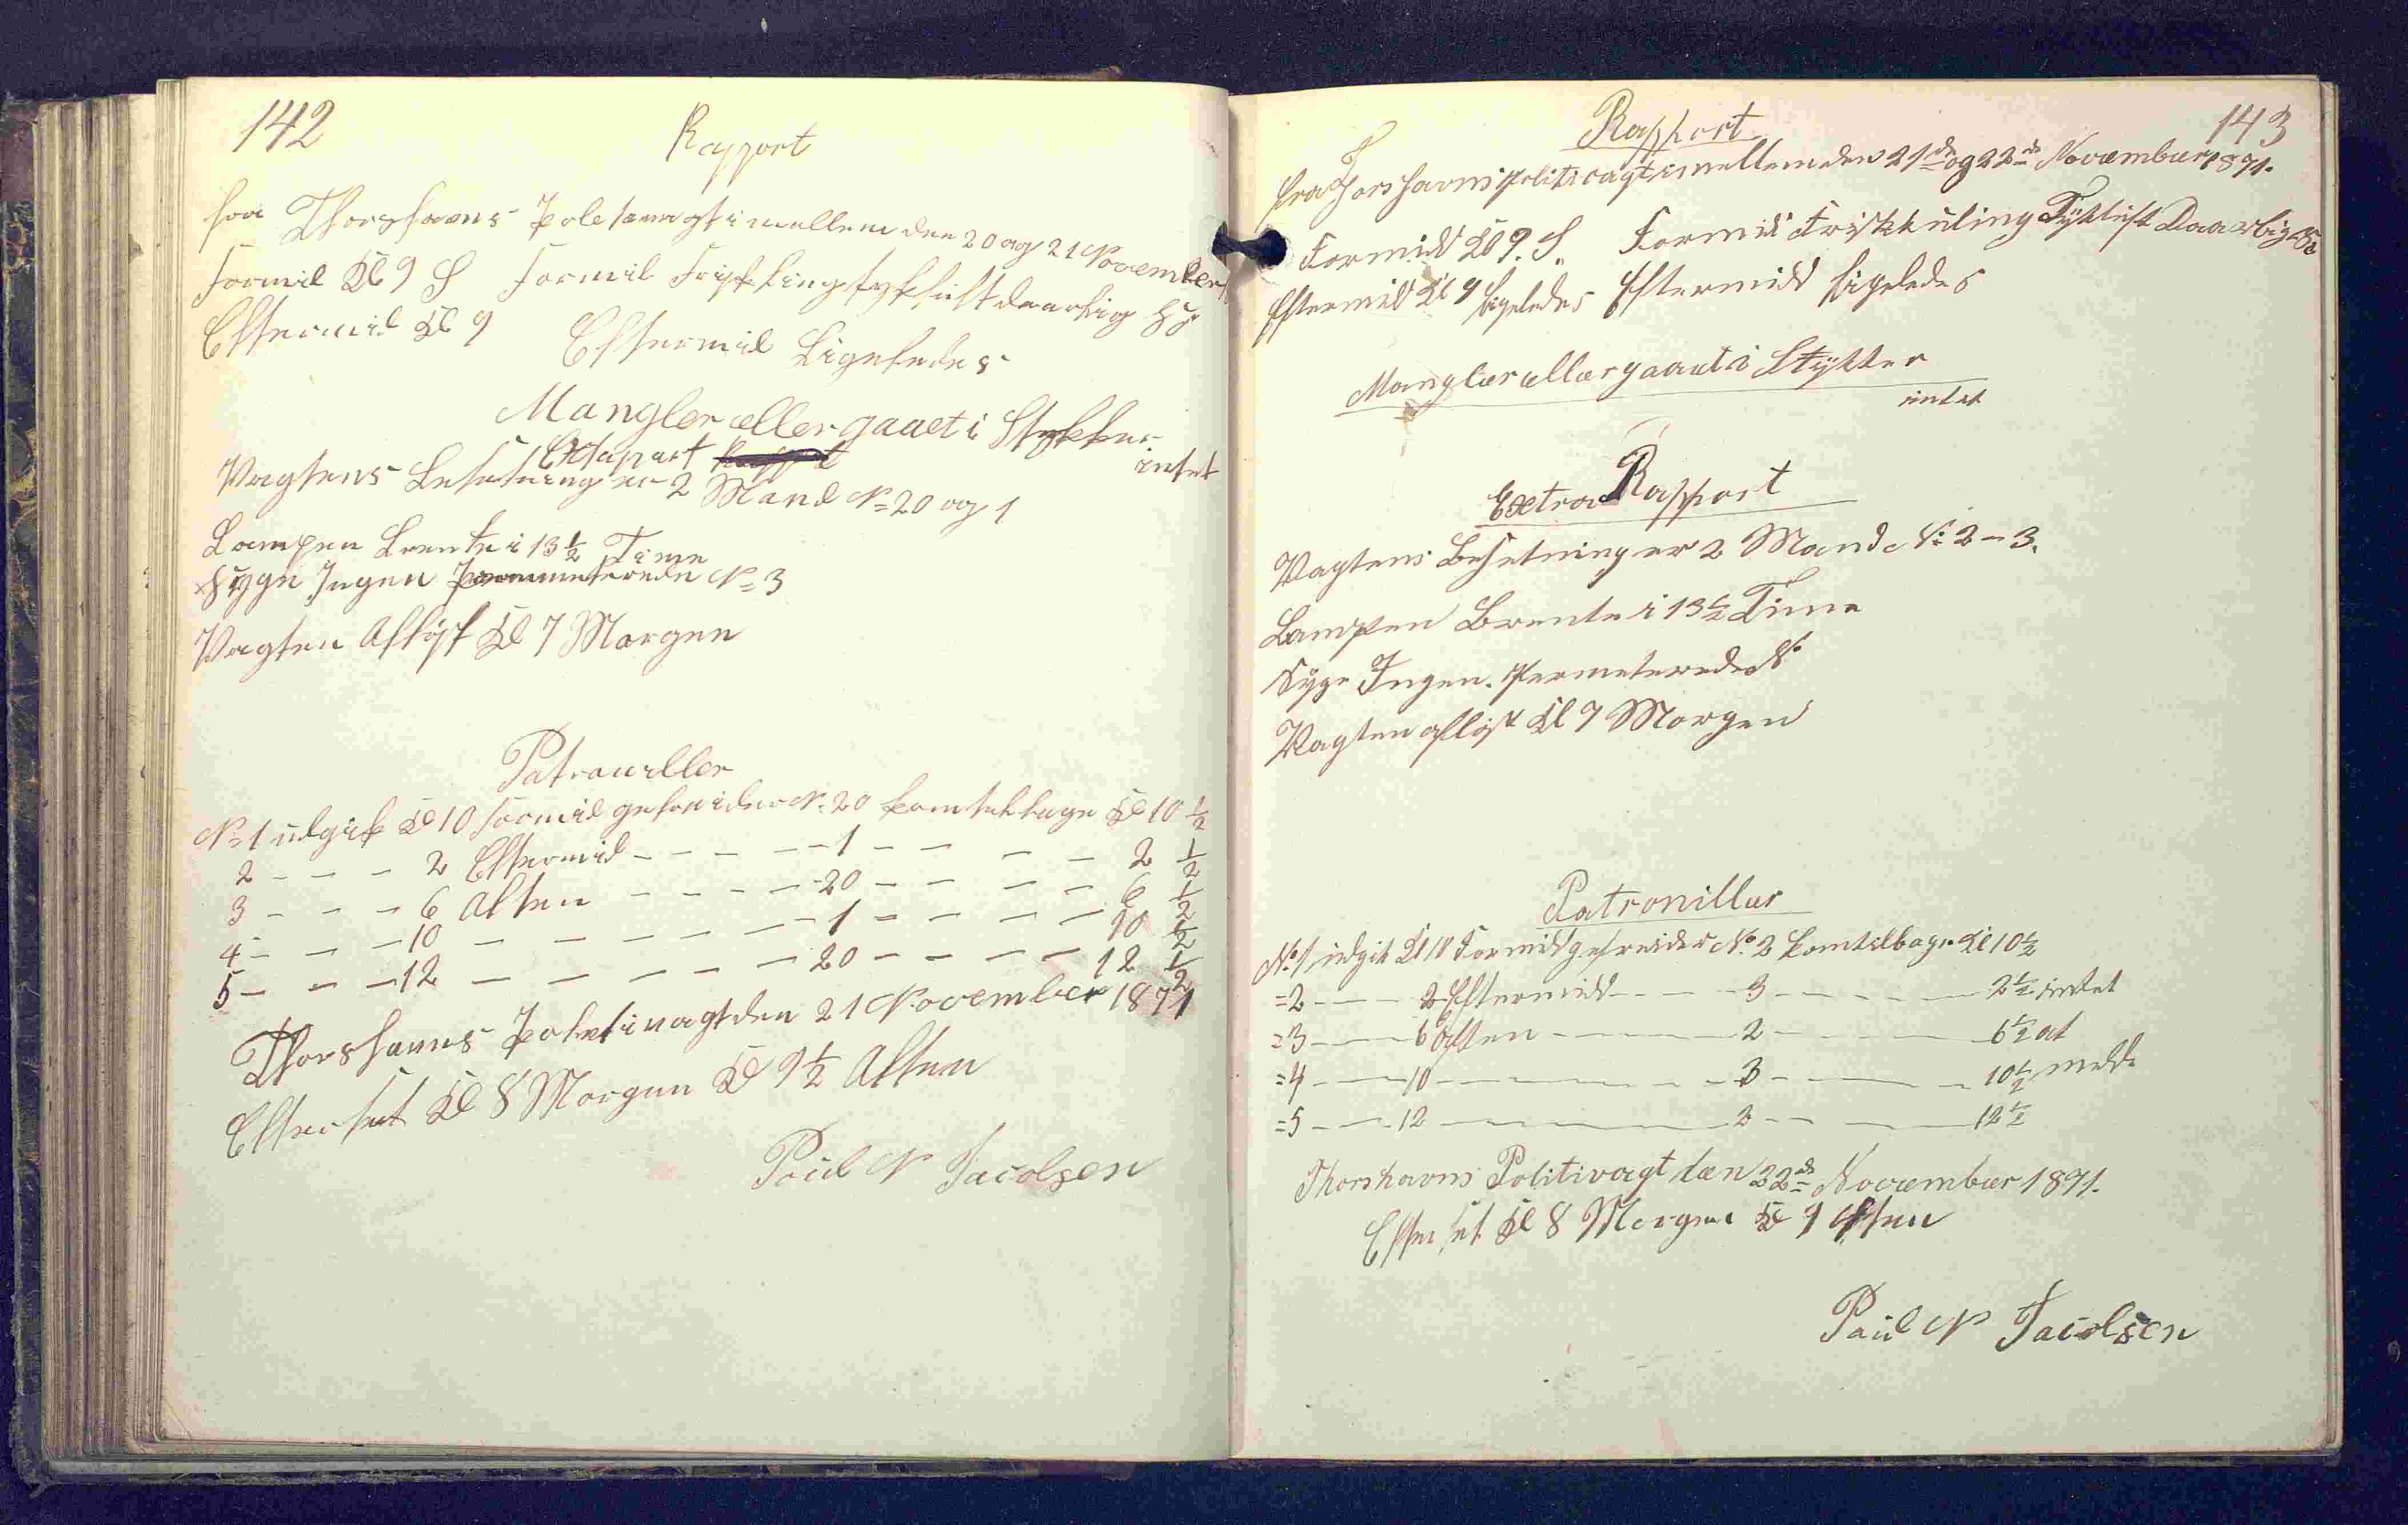 142
Rapport
fra Thorshavns Poletivagt imellem den 20 og 21 November
Formid Kl 9 S Formid Frisk king tyk luft daarlig
Eftermid Kl 9 Eftermid Ligeledes
Mangler eller gaaet i Stykker
intet
Extrapart
Vagtens Besetning er 2 Mand No 20 og 1
Lampen brente i 13 1/2 Time
Syge Ingen No 3
Vagten Afløst Kl 7 Morgen
Patrouiller
No 1 udgik Kl 10 Formid gefreider No 20 kom tilbage Kl 10 1/2
2 - - - 2 Eftermid - - - - - 1 - - - - 2 1/2
3 - - - 6 Aften - - - - 20 - - - - 6 1/2
4 - - - 10 - - - - - - 1 - - - - 10 1/2
5 - - - 12 - - - - - 20 - - - - 12 1/2
Thorshavns Poletivagt den 21 November 1871
Efterset Kl 8 Morgen Kl 9 1/2 Aften
Poul N Jacobsen
143
Rapport
fra Thorshavns Politivagt imellem den 21de og 22de November 1871.
Formidd Kl 9. S. Formid Frisk kuling Tyk luft Daarlig
Eftermid Kl 9 ligeledes Eftermidd ligeledes
Mangler eller gaaet i Stykker
intet
Extra Rapport
Vagtens Besetning er 2 Mand No 2 - 3.
Lampen Brente i 13 1/2 Time
Syge Ingen. Permeterede No
Vagten afløst Kl 7 Morgen
Patrouiller
No 1 udgik Kl 10 Formidd gefreider No 2 kom tilbage Kl 10 1/2
= 2 - - - 2 Eftermidd - - - 3 - - - - 2 1/2 intet
= 3 - - - 6 Aften - - - 2 - - - 6 1/2 at
= 4 - - - 10 - - - - 3 - - - 10 1/2 melde
= 5 - - - 12 - - - - 2 - - - 12 1/2
Thorshavns Politivagt den 22de November 1871.
Efterset Kl 8 Morgen Kl 9 Aften
Poul N Jacobsen